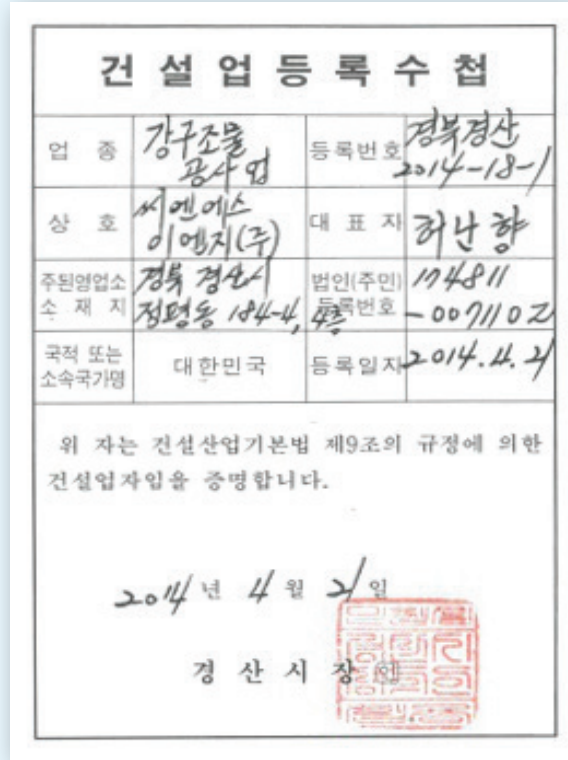 건설업등록수첩
업 종 강구조물 공사업 등록번호 경북경산 2014-18-1
상 호 씨엔에스 이엔지(주) 대 표 자 허난향
주된영업소 소 재 지 경북 경산시 정평동 184-4, 4층 법인(주민) 등록번호 174811 -0071102
국적 또는 소속국가명 대한민국 등록일자 2014.4.21
위 자는 건설산업기본법 제9조의 규정에 의한
건설업자임을 증명합니다.
2014년 4월 21일
경 산 시 장 인